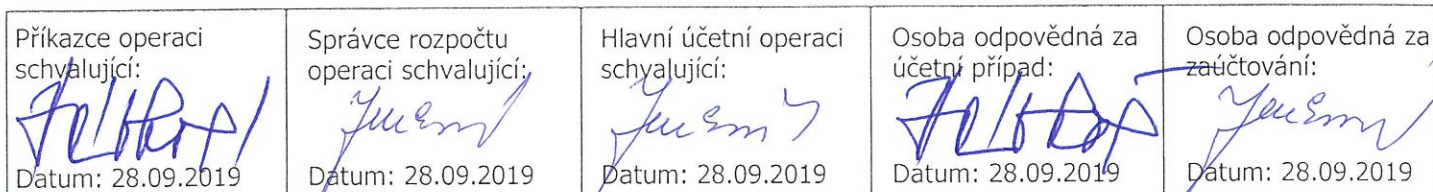 Příkazce operaci
schvalující:
Datum: 28.09.2019
Správce rozpočtu
operaci schvalující:
Datum: 28.09.2019
Hlavní účetní operaci
schvalující:
Datum: 28.09.2019
Osoba odpovědná za
účetní případ:
Datum: 28.09.2019
Osoba odpovědná za
zaúčtování:
Datum: 28.09.2019